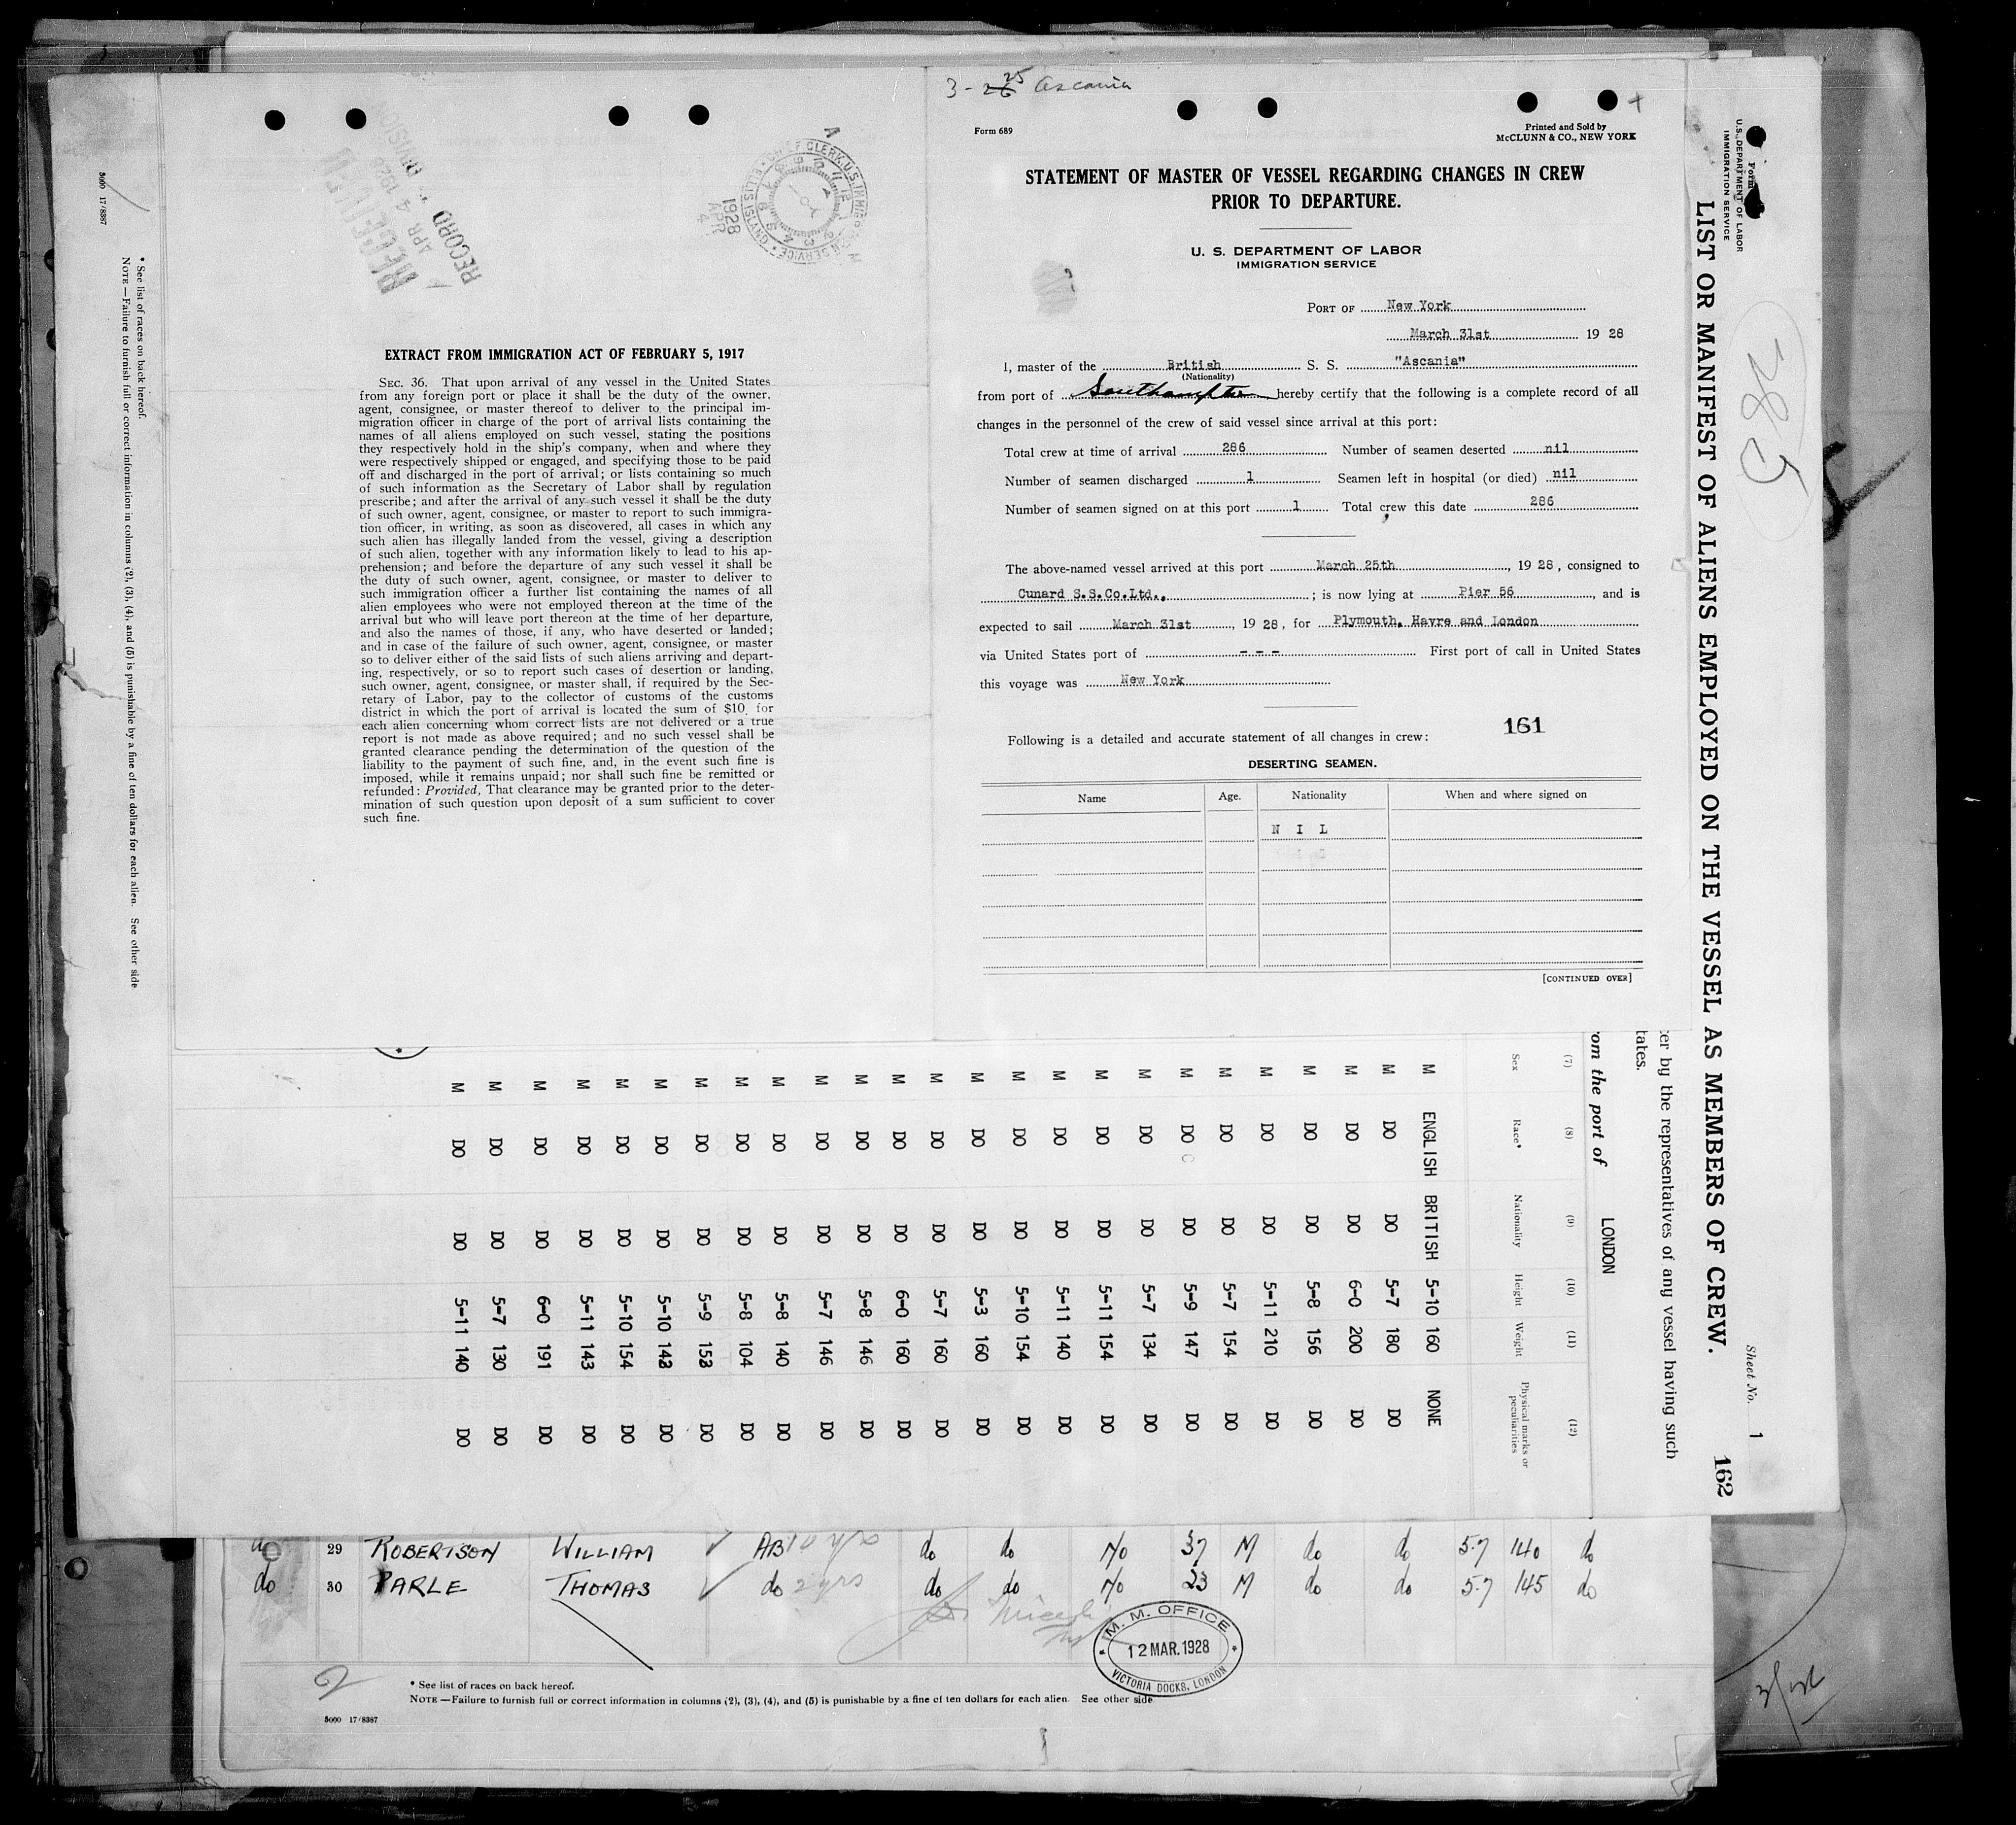 3-25 Ascania
Form 689
Printed and Sold by
McCLUNN & CO., NEW YORK
STATEMENT OF MASTER OF VESSEL REGARDING CHANGES IN CREW
PRIOR TO DEPARTURE.
U. S. DEPARTMENT OF LABOR
IMMIGRATION SERVICE
PORT OF New York
March 31st 1928
I, master of the British S. S. "Ascania"
(Nationality)
from port of Southampton hereby certify that the following is a complete record of all
changes in the personnel of the crew of said vessel since arrival at this port:
Total crew at time of arrival 286 Number of seamen deserted nil
Number of seamen discharged 1 Seamen left in hospital (or died) nil
Number of seamen signed on at this port 1 Total crew this date 286
The above-named vessel arrived at this port March 25th, 1928, consigned to
Cunard S.S.Co.Ltd., ; is now lying at Pier 56, and is
expected to sail March 31st, 1928, for Plymouth, Havre and London
via United States port of --- First port of call in United States
this voyage was New York
161
Following is a detailed and accurate statement of all changes in crew:
DESERTING SEAMEN.
Name Age. Nationality When and where signed on
N I L
[CONTINUED OVER]
RECEIVED
APR 4 1928
RECORD DIVISION
CHIEF CLERK, U.S. IMMIGRATION SERVICE
ELLIS ISLAND
1928
APR
4
EXTRACT FROM IMMIGRATION ACT OF FEBRUARY 5, 1917
SEC. 36. That upon arrival of any vessel in the United States
from any foreign port or place it shall be the duty of the owner,
agent, consignee, or master thereof to deliver to the principal im-
migration officer in charge of the port of arrival lists containing the
names of all aliens employed on such vessel, stating the positions
they respectively hold in the ship's company, when and where they
were respectively shipped or engaged, and specifying those to be paid
off and discharged in the port of arrival; or lists containing so much
of such information as the Secretary of Labor shall by regulation
prescribe; and after the arrival of any such vessel it shall be the duty
of such owner, agent, consignee, or master to report to such immigra-
tion officer, in writing, as soon as discovered, all cases in which any
such alien has illegally landed from the vessel, giving a description
of such alien, together with any information likely to lead to his ap-
prehension; and before the departure of any such vessel it shall be
the duty of such owner, agent, consignee, or master to deliver to
such immigration officer a further list containing the names of all
alien employees who were not employed thereon at the time of the
arrival but who will leave port thereon at the time of her departure,
and also the names of those, if any, who have deserted or landed;
and in case of the failure of such owner, agent, consignee, or master
so to deliver either of the said lists of such aliens arriving and depart-
ing, respectively, or so to report such cases of desertion or landing,
such owner, agent, consignee, or master shall, if required by the Sec-
retary of Labor, pay to the collector of customs of the customs
district in which the port of arrival is located the sum of $10 for
each alien concerning whom correct lists are not delivered or a true
report is not made as above required; and no such vessel shall be
granted clearance pending the determination of the question of the
liability to the payment of such fine, and, in the event such fine is
imposed, while it remains unpaid; nor shall such fine be remitted or
refunded: Provided, That clearance may be granted prior to the deter-
mination of such question upon deposit of a sum sufficient to cover
such fine.
Form
U.S. DEPARTMENT OF LABOR
IMMIGRATION SERVICE
385
LIST OR MANIFEST OF ALIENS EMPLOYED ON THE VESSEL AS MEMBERS OF CREW.
Sheet No. 1
162
cer by the representatives of any vessel having such
tates.
om the port of LONDON
(7) (8) (9) (10) (11) (12)
Sex Race* Nationality Height Weight Physical marks or peculiarities
M ENGLISH BRITISH 5=10 160 NONE
M DO DO 5=7 180 DO
M DO DO 6=0 200 DO
M DO DO 5=8 156 DO
M DO DO 5=11 210 DO
M DO DO 5=7 154 DO
M DO DO 5=9 147 DO
M DO DO 5=7 134 DO
M DO DO 5=11 154 DO
M DO DO 5=11 140 DO
M DO DO 5=10 154 DO
M DO DO 5=3 160 DO
M DO DO 5=7 160 DO
M DO DO 6=0 160 DO
M DO DO 5=8 146 DO
M DO DO 5=7 146 DO
M DO DO 5=8 140 DO
M DO DO 5=8 104 DO
M DO DO 5=9 153 DO
M DO DO 5=10 143 DO
M DO DO 5=10 154 DO
M DO DO 5=11 143 DO
M DO DO 6=0 191 DO
M DO DO 5=7 130 DO
M DO DO 5=11 140 DO
* See list of races on back hereof.
NOTE—Failure to furnish full or correct information in columns (2), (3), (4), and (5) is punishable by a fine of ten dollars for each alien. See other side
5000 17/8387
do 29 ROBERTSON WILLIAM AB 10 yrs do do No 37 M do do 5.7 140 do
do 30 PARLE THOMAS do 2 yrs do do No 23 M do do 5.7 145 do
M. M. OFFICE
12 MAR. 1928
VICTORIA DOCKS, LONDON
2
* See list of races on back hereof.
NOTE—Failure to furnish full or correct information in columns (2), (3), (4), and (5) is punishable by a fine of ten dollars for each alien. See other side
5000 17/8387